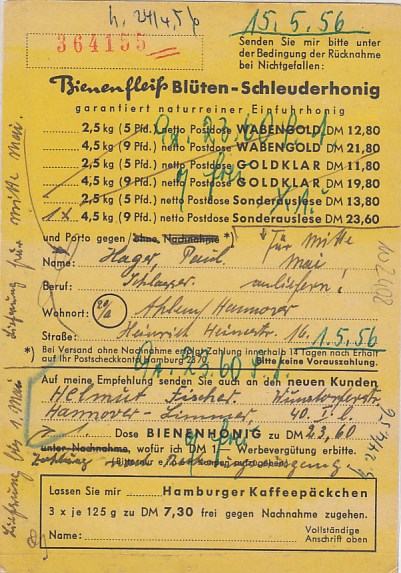 h. 24/4,5/p
15. 5. 56
364155
Senden Sie mir bitte unter
der Bedingung der Rücknahme
bei Nichtgefallen:
Bienenfleiß Blüten-Schleuderhonig
garantiert naturreiner Einfuhrhonig
2,5 kg (5 Pfd.) netto Postdose WABENGOLD DM 12,80
4,5 kg (9 Pfd.) netto Postdose WABENGOLD DM 21,80
2,5 kg (5 Pfd.) netto Postdose GOLDKLAR DM 11,80
4,5 kg (9 Pfd.) netto Postdose GOLDKLAR DM 19,80
2,5 kg (5 Pfd.) netto Postdose Sonderauslese DM 13,80
1x 4,5 kg (9 Pfd.) netto Postdose Sonderauslese DM 23,60
und Porto gegen (ohne Nachnahme *)
Für Mitte
Mai
anliefern!
Name: Hager, Paul
Beruf:
Wohnort: 20/a Ahlem/Hannover
Straße: Heinrich 16
1. 5. 56
*) Bei Versand ohne Nachnahme erfolgt Zahlung innerhalb 14 Tagen nach Erhalt
auf Ihr Postscheckkonto Hamburg 2870. Bitte keine Vorauszahlung.
23.60
Auf meine Empfehlung senden Sie auch an den neuen Kunden
Helmut Fischer, Wunstorferstr.
Hannover-Limmer, 40
Dose BIENENHONIG zu DM 23,60
unter Nachnahme, wofür ich DM 1 Werbevergütung erbitte.
Lieferung für Mitte Mai.
Lieferung für 1. Mai
Lassen Sie mir Hamburger Kaffeepäckchen
3 x je 125 g zu DM 7,30 frei gegen Nachnahme zugehen.
Name: Vollständige
Anschrift oben